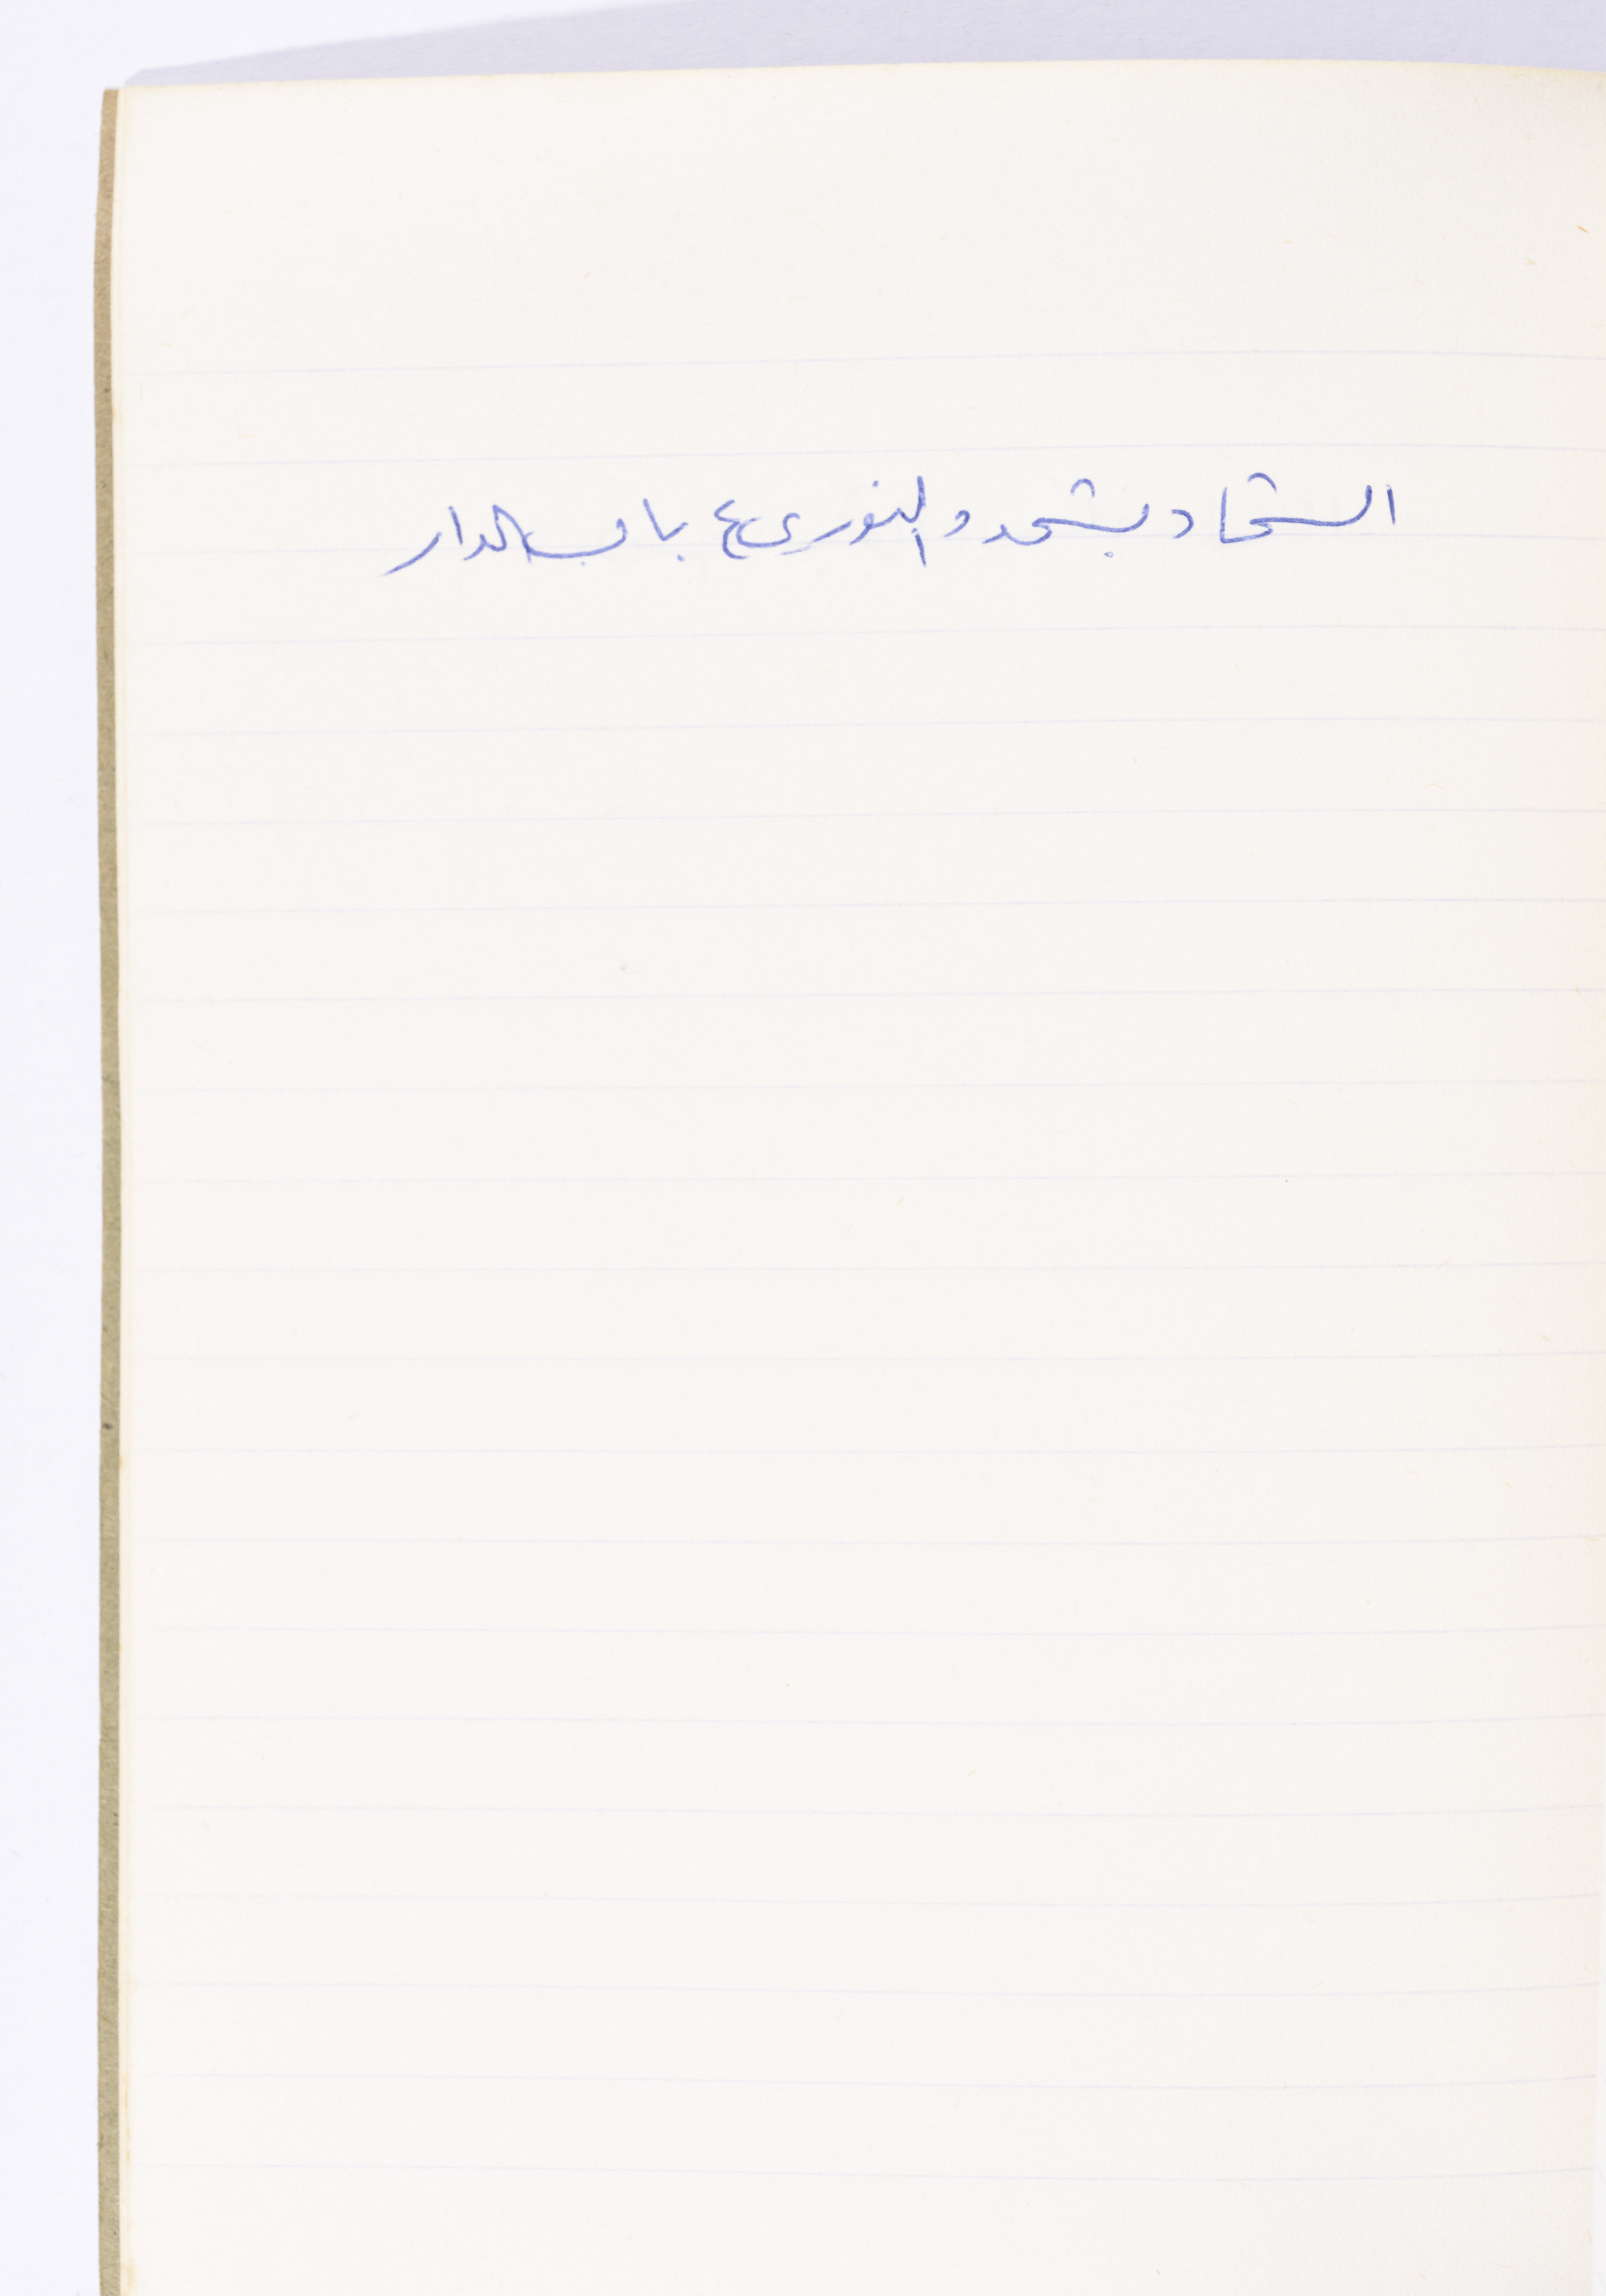 الشحاد بشحد والنوري ع باب الدار